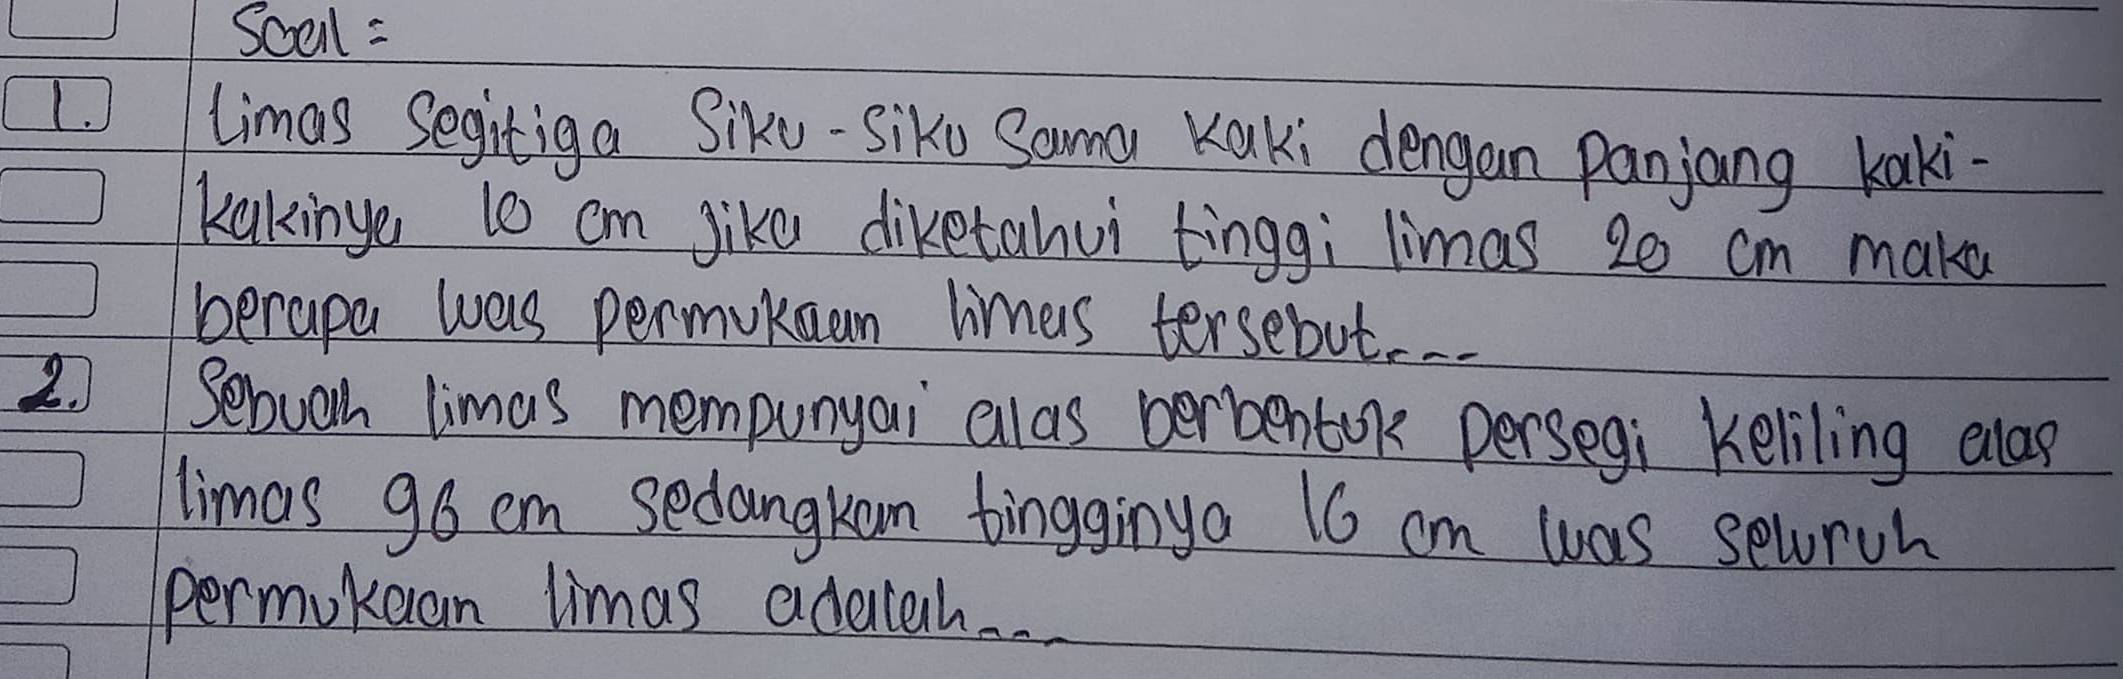 Soal =
1. limas segitiga Siku-siku Sama kaki dengan panjang kaki-
kakinya 10 cm jika diketahui tinggi limas 20 cm maka
berapa luas permukaan limas tersebut....
2. Sebuah limas mempunyai alas berbentuk persegi keliling alas
limas 96 cm sedangkan tingginya 16 cm luas seluruh
permukaan limas adalah...